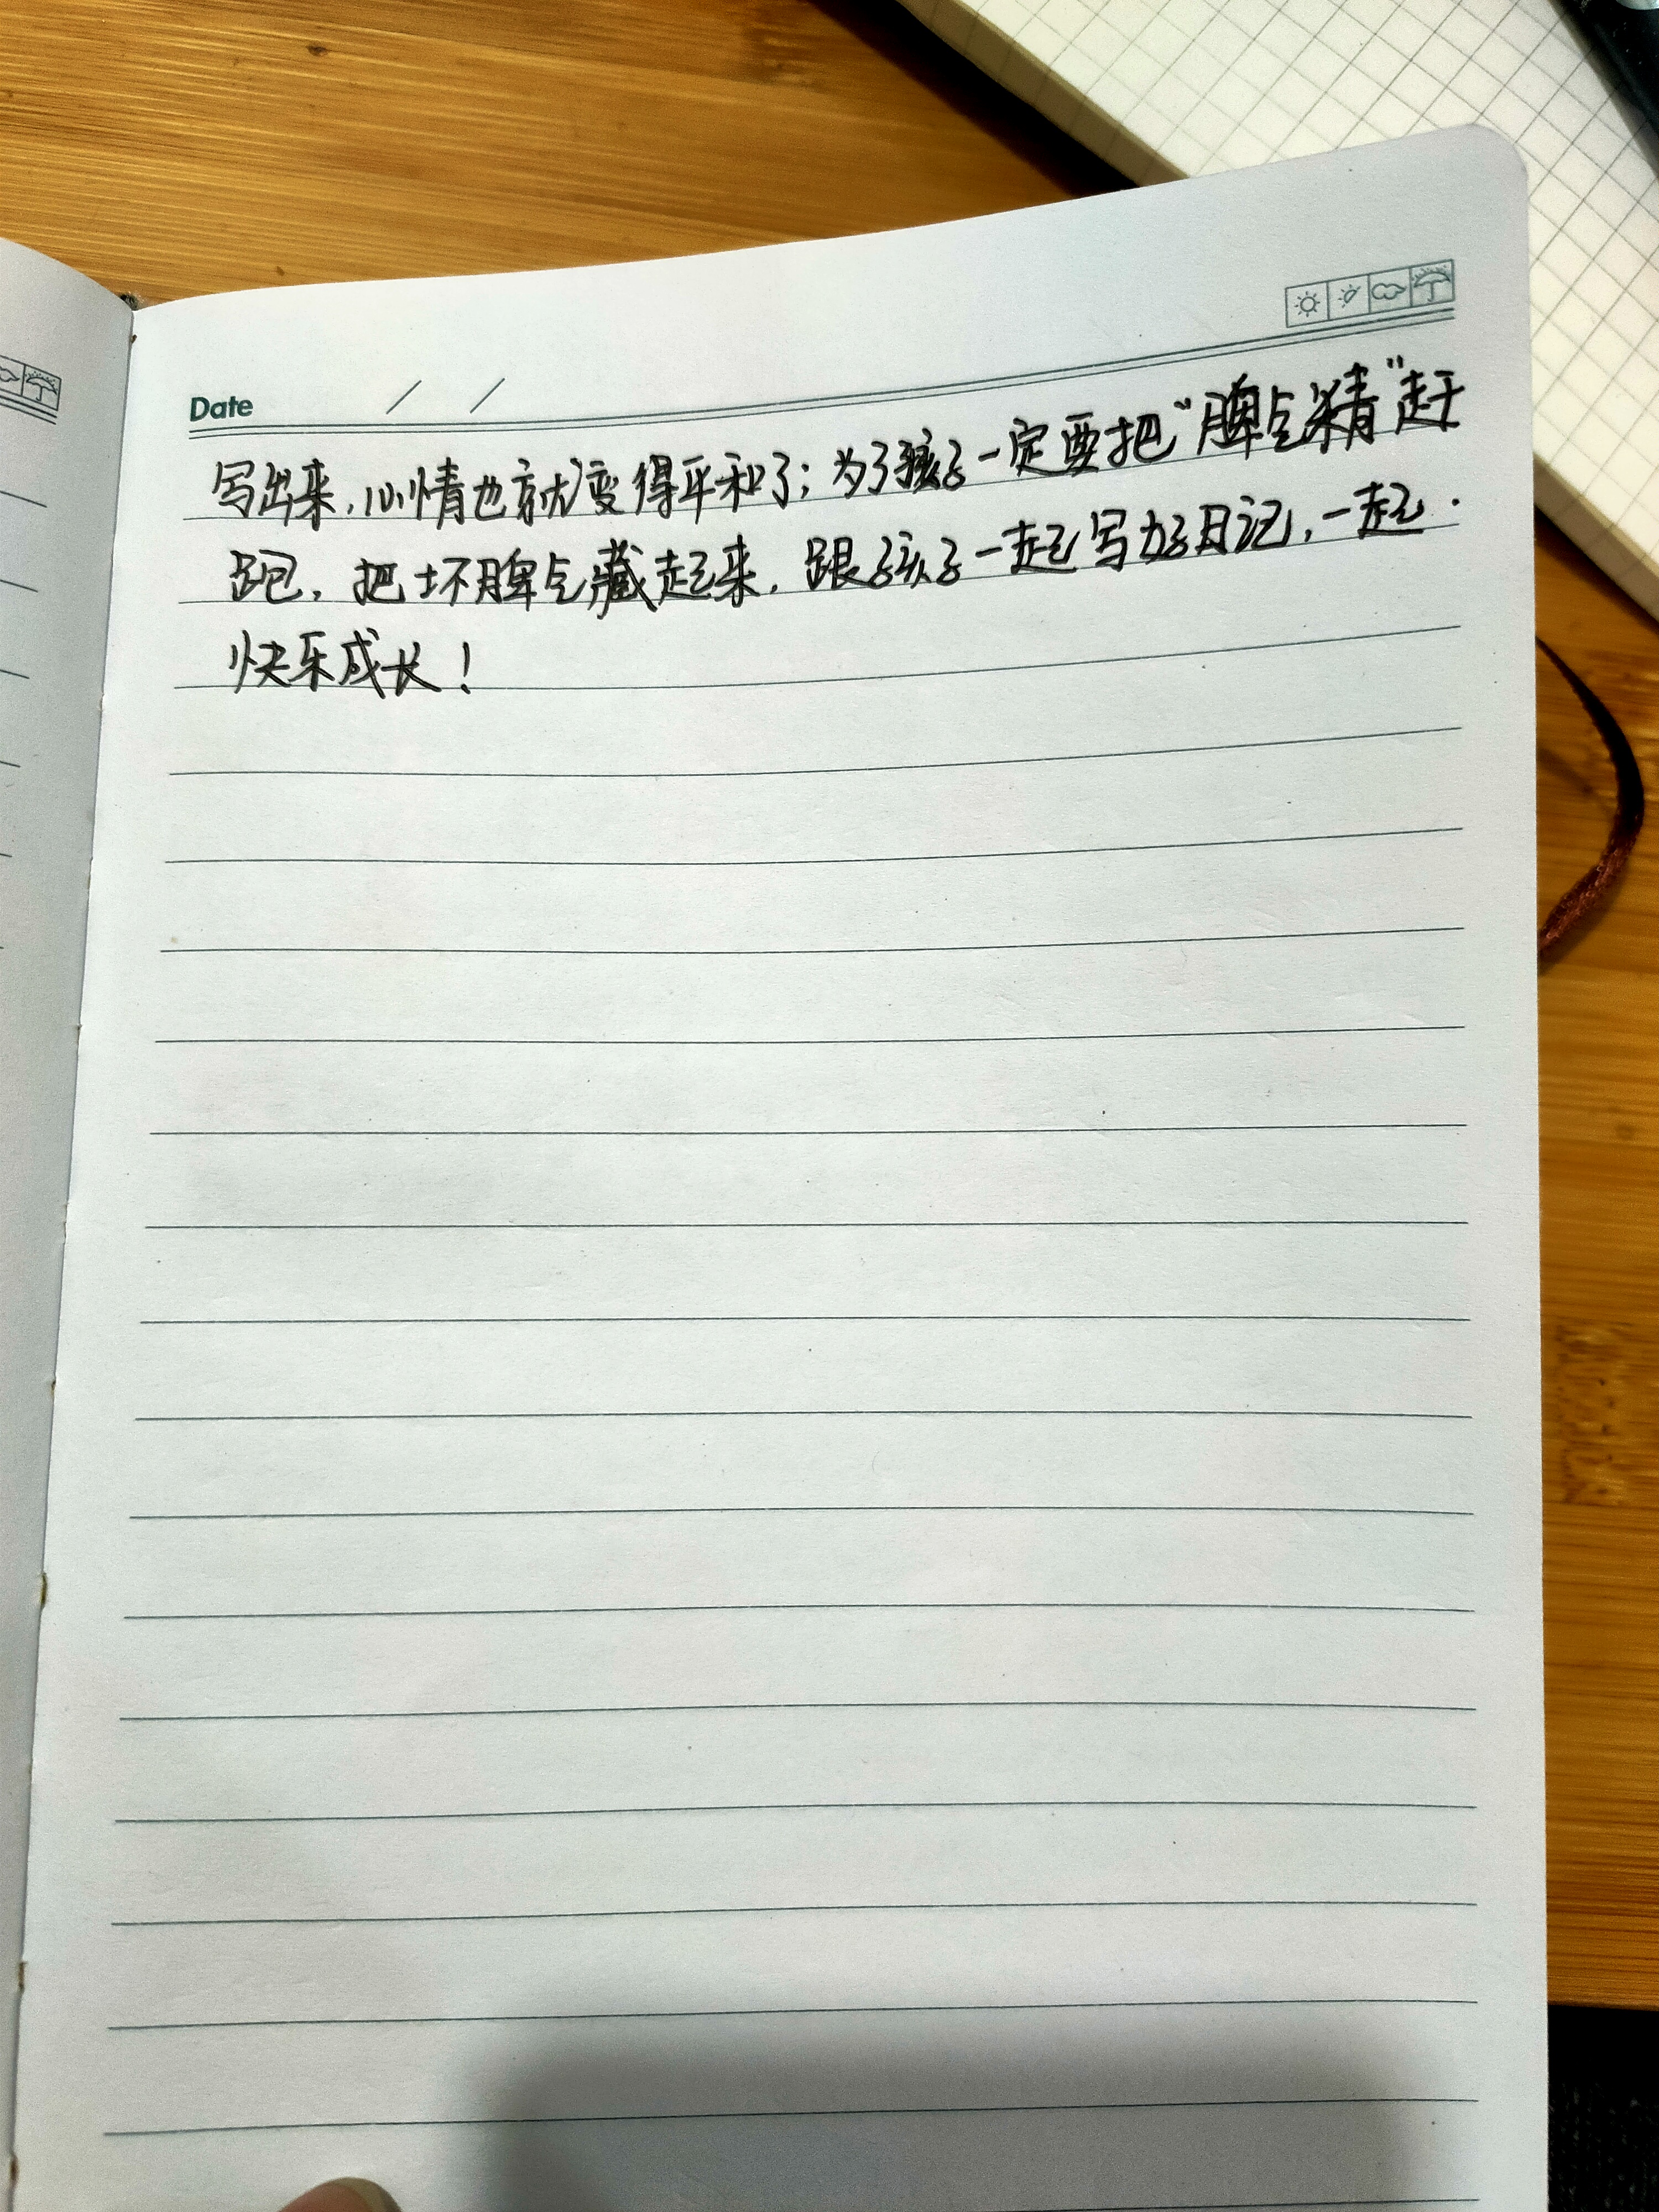 Date / /
写出来,心情也就变得平和了;为了孩子一定要把“脾气精”赶
跑,把坏脾气藏起来,跟孩子一起写好日记,一起
快乐成长!